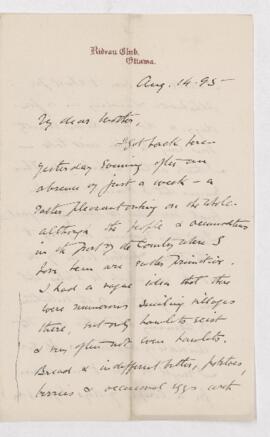 Rideau Club,
Ottawa.
Aug. 14. 95 -
My dear Mother,
I got back here
yesterday evening after an
absence of just a week - a
rather pleasant outing on the whole
although the people & accommodation
in the part of the Country where I
have been are rather primitive.
I had a vague idea that there
were numerous smiling villages
there, but only hamlets exist
& very often not even hamlets.
Bread & indifferent butter, potatoes,
berries & occasional eggs with